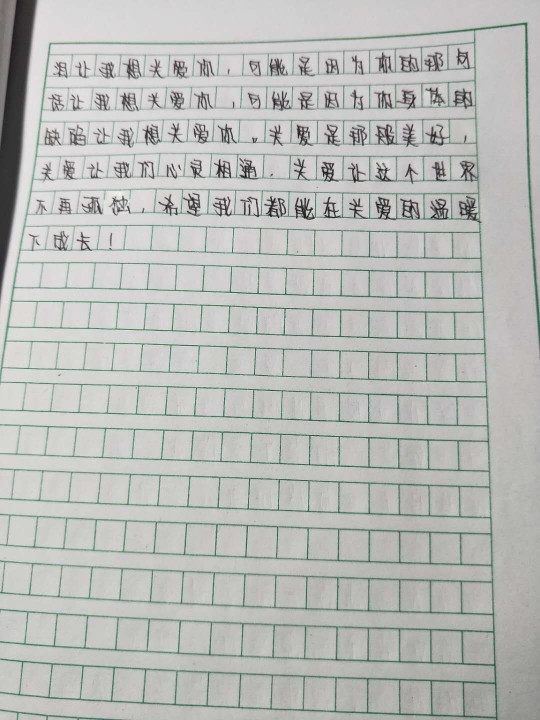 泪让我想关爱你，可能是因为你的那句
话让我想关爱你，可能是因为你身体的
缺陷让我想关爱你。关爱是那般美好，
关爱让我们心灵相通，关爱让这个世界
不再孤独，希望我们都能在关爱的温暖
下成长！